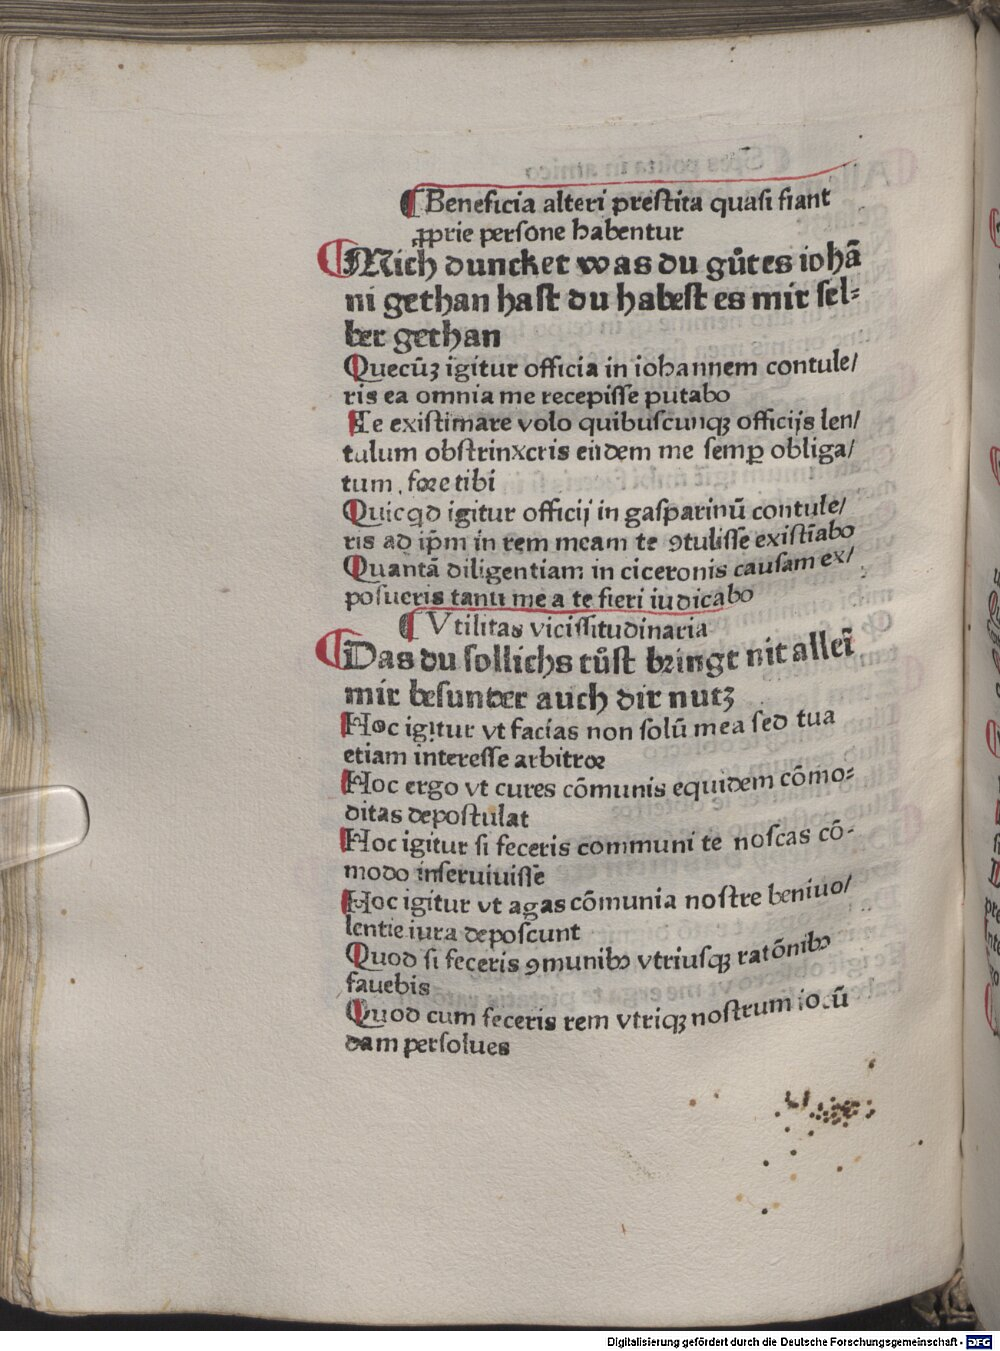 ¶ Beneficia alteri prestita quasi fiant
ꝓprie persone habentur
¶ Mich duncket was du gůtes iohā
ni gethan hast du habest es mir sel⸗
ber gethan
Quecūꝫ igitur officia in iohannem contule/
ris ea omnia me recepisse putabo
Te existimare volo quibuscunqꝫ officijs len/
tulum obstrinxeris eiidem me semꝑ obliga/
tum, fore tibi
Quicqd igitur officij in gasparinū contule/
ris ad ip̄m in rem meam te ꝯtulisse existīabo
Quantā diligentiam in ciceronis causam ex/
posueris tanti me a te fieri iudicabo
¶ Vtilitas vicissitudinaria
¶ Das du sollichs tůst bringt nit alleī
mir besunder auch dir nutz
Hoc igitur vt facias non solū mea sed tua
etiam interesse arbitror
Hoc ergo vt cures cōmunis equidem cōmo⸗
ditas depostulat
Hoc igitur si feceris communi te noscas cō-
modo inseruiuisse
Hoc igitur vt agas cōmunia nostre beniuo/
lentie iura deposcunt
Quod si feceris ꝯmunibꝰ vtriusqꝫ ratōnibꝰ
favebis
Quod cum feceris rem vtriqꝫ nostrum iocū
dam persolues
Digitalisierung gefördert durch die Deutsche Forschungsgemeinschaft - DFG